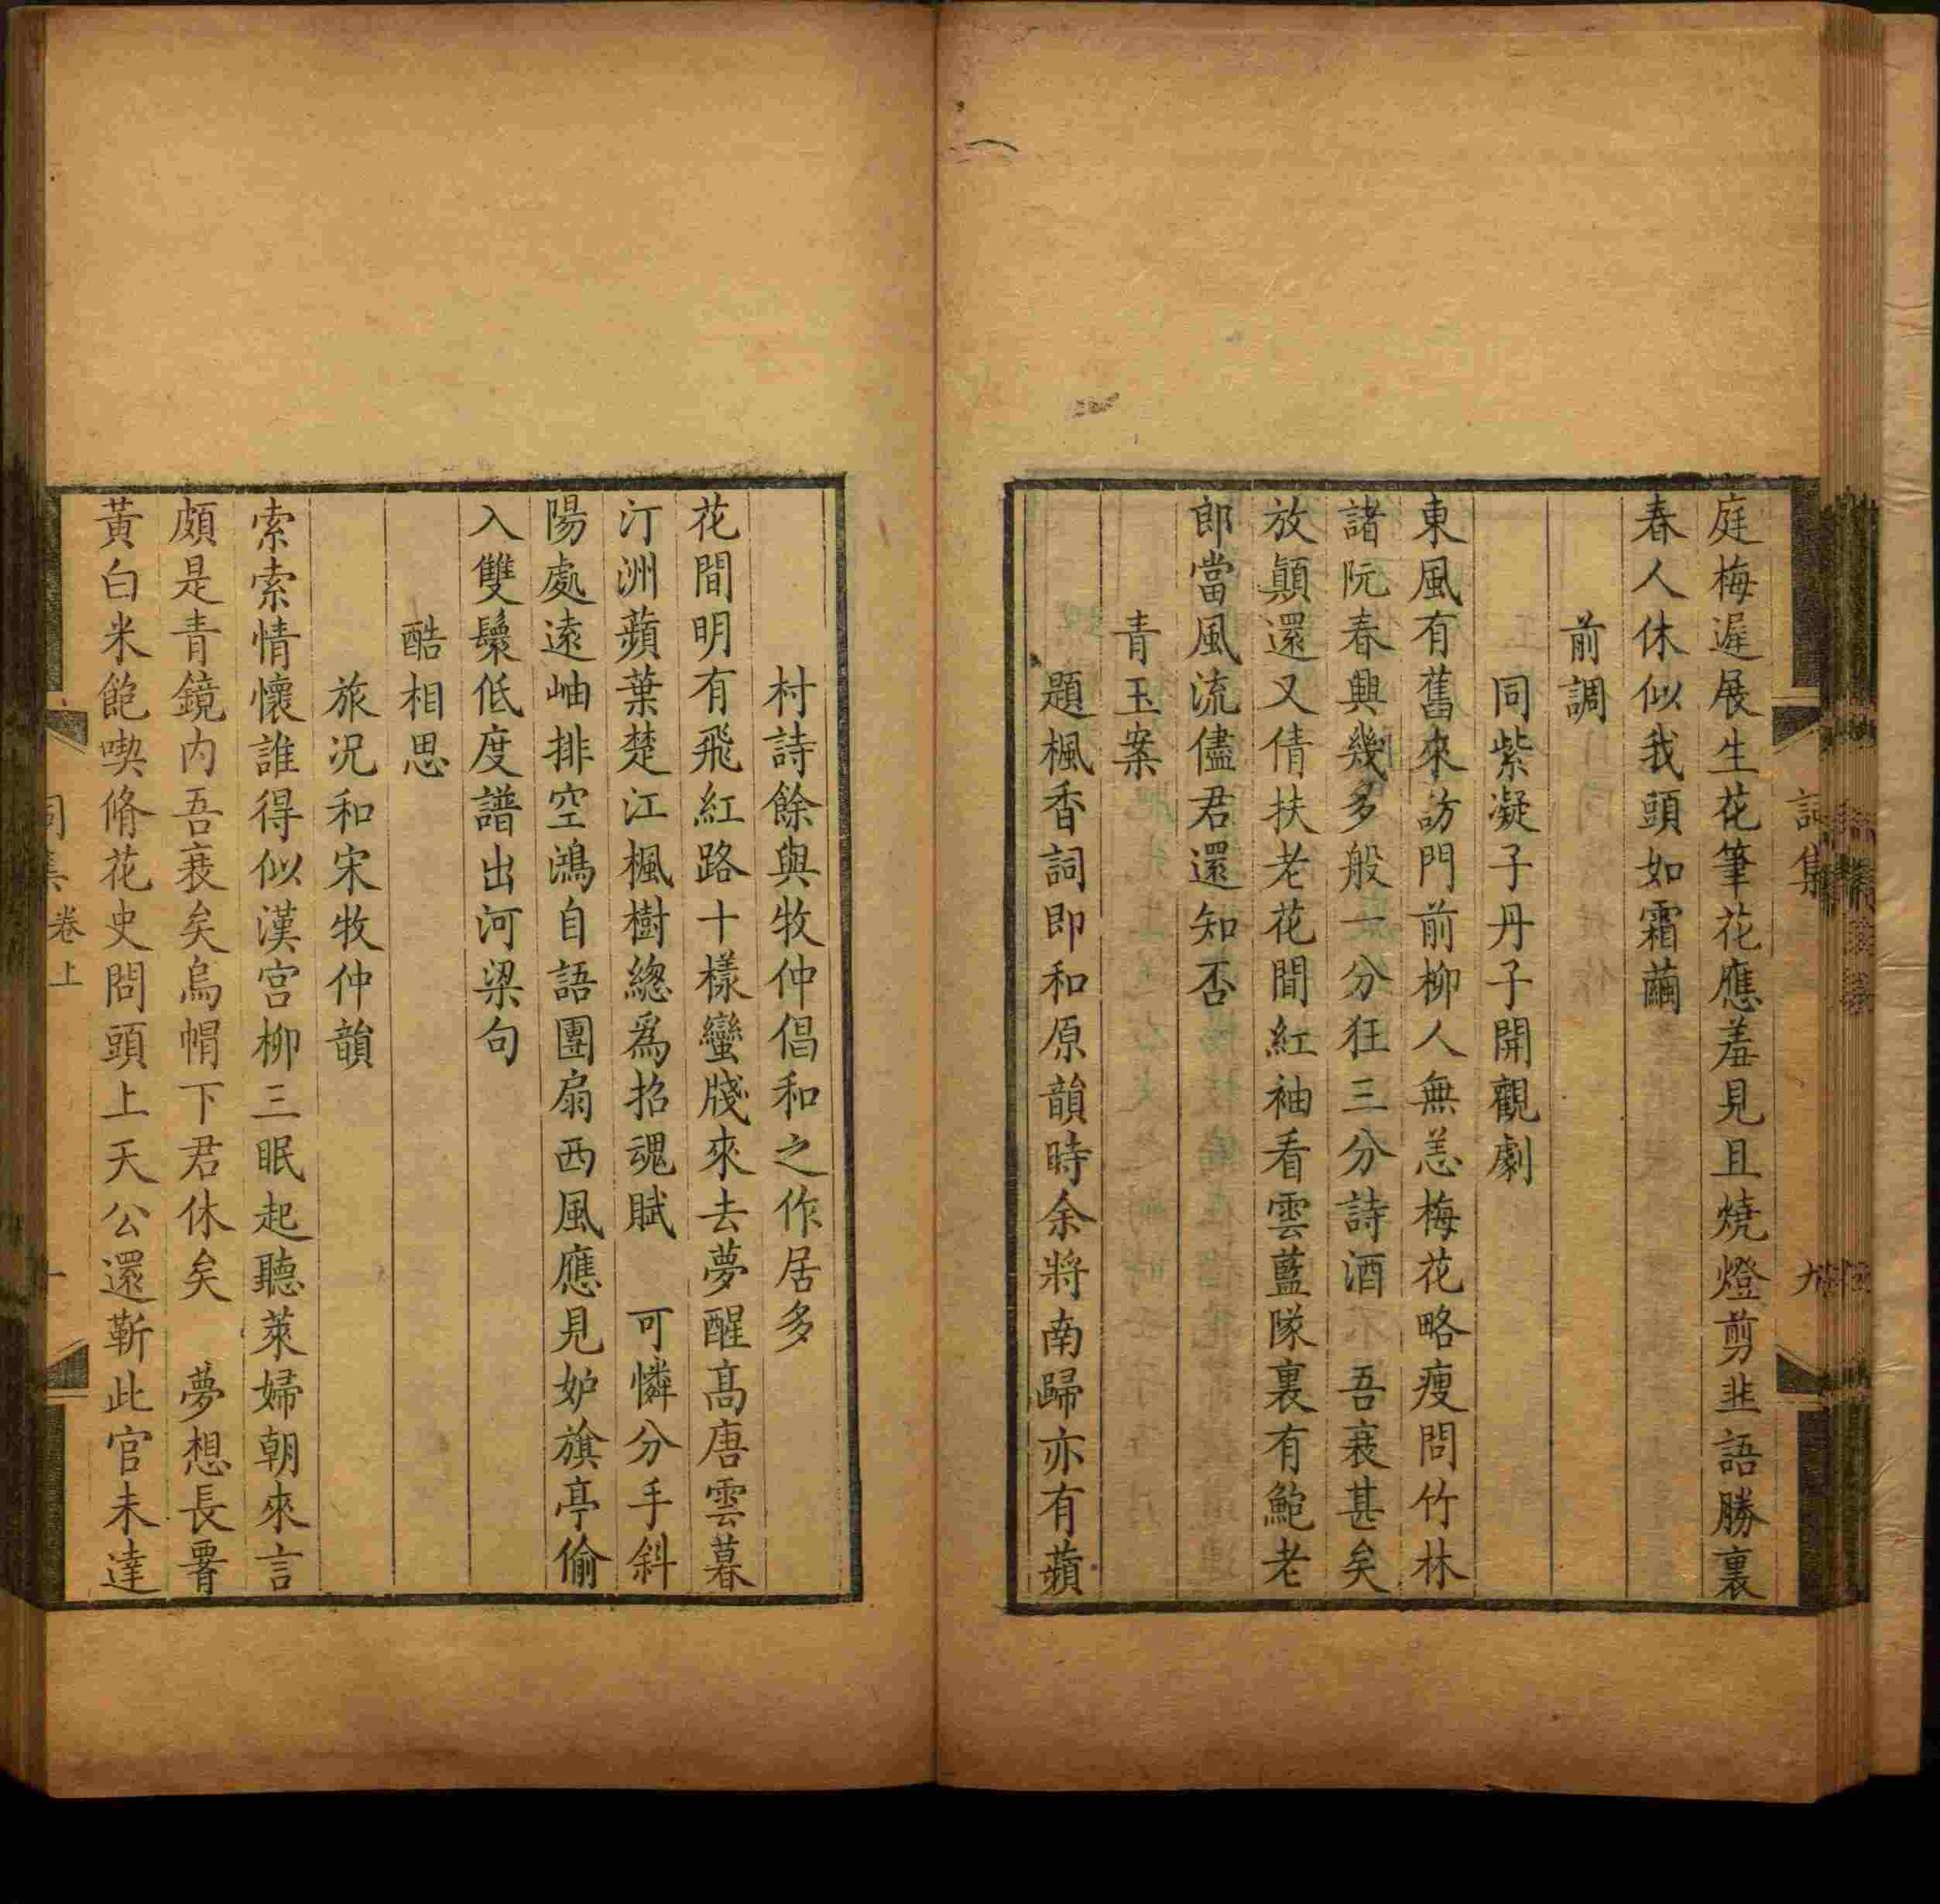 庭梅遲展生花筆花應羞見且燒燈剪韭語勝裏
春人休似我頭如霜繭
前調
同紫凝子丹子開觀劇
東風有舊來訪門前柳人無恙梅花略瘦問竹林
諸阮春興幾多般一分狂三分詩酒　吾衰甚矣
放顛還又倩扶老花間紅袖看雲藍隊裏有鮑老
郎當風流儘君還知否
青玉案
題楓香詞即和原韻時余將南歸亦有蘋
村詩餘與牧仲倡和之作居多
花間明有飛紅路十樣蠻牋來去夢醒高唐雲暮
汀洲蘋葉楚江楓樹總爲招魂賦　可憐分手斜
陽處遠岫排空鴻自語團扇西風應見妒旗亭偷
入雙鬟低度譜出河梁句
酷相思
旅况和宋牧仲韻
索索情懷誰得似漢宮柳三眠起聽萊婦朝來言
頗是青鏡内吾衰矣烏帽下君休矣　夢想長罾
黃白米飽喫脩花史問頭上天公還靳此官未達
詞集
卷上